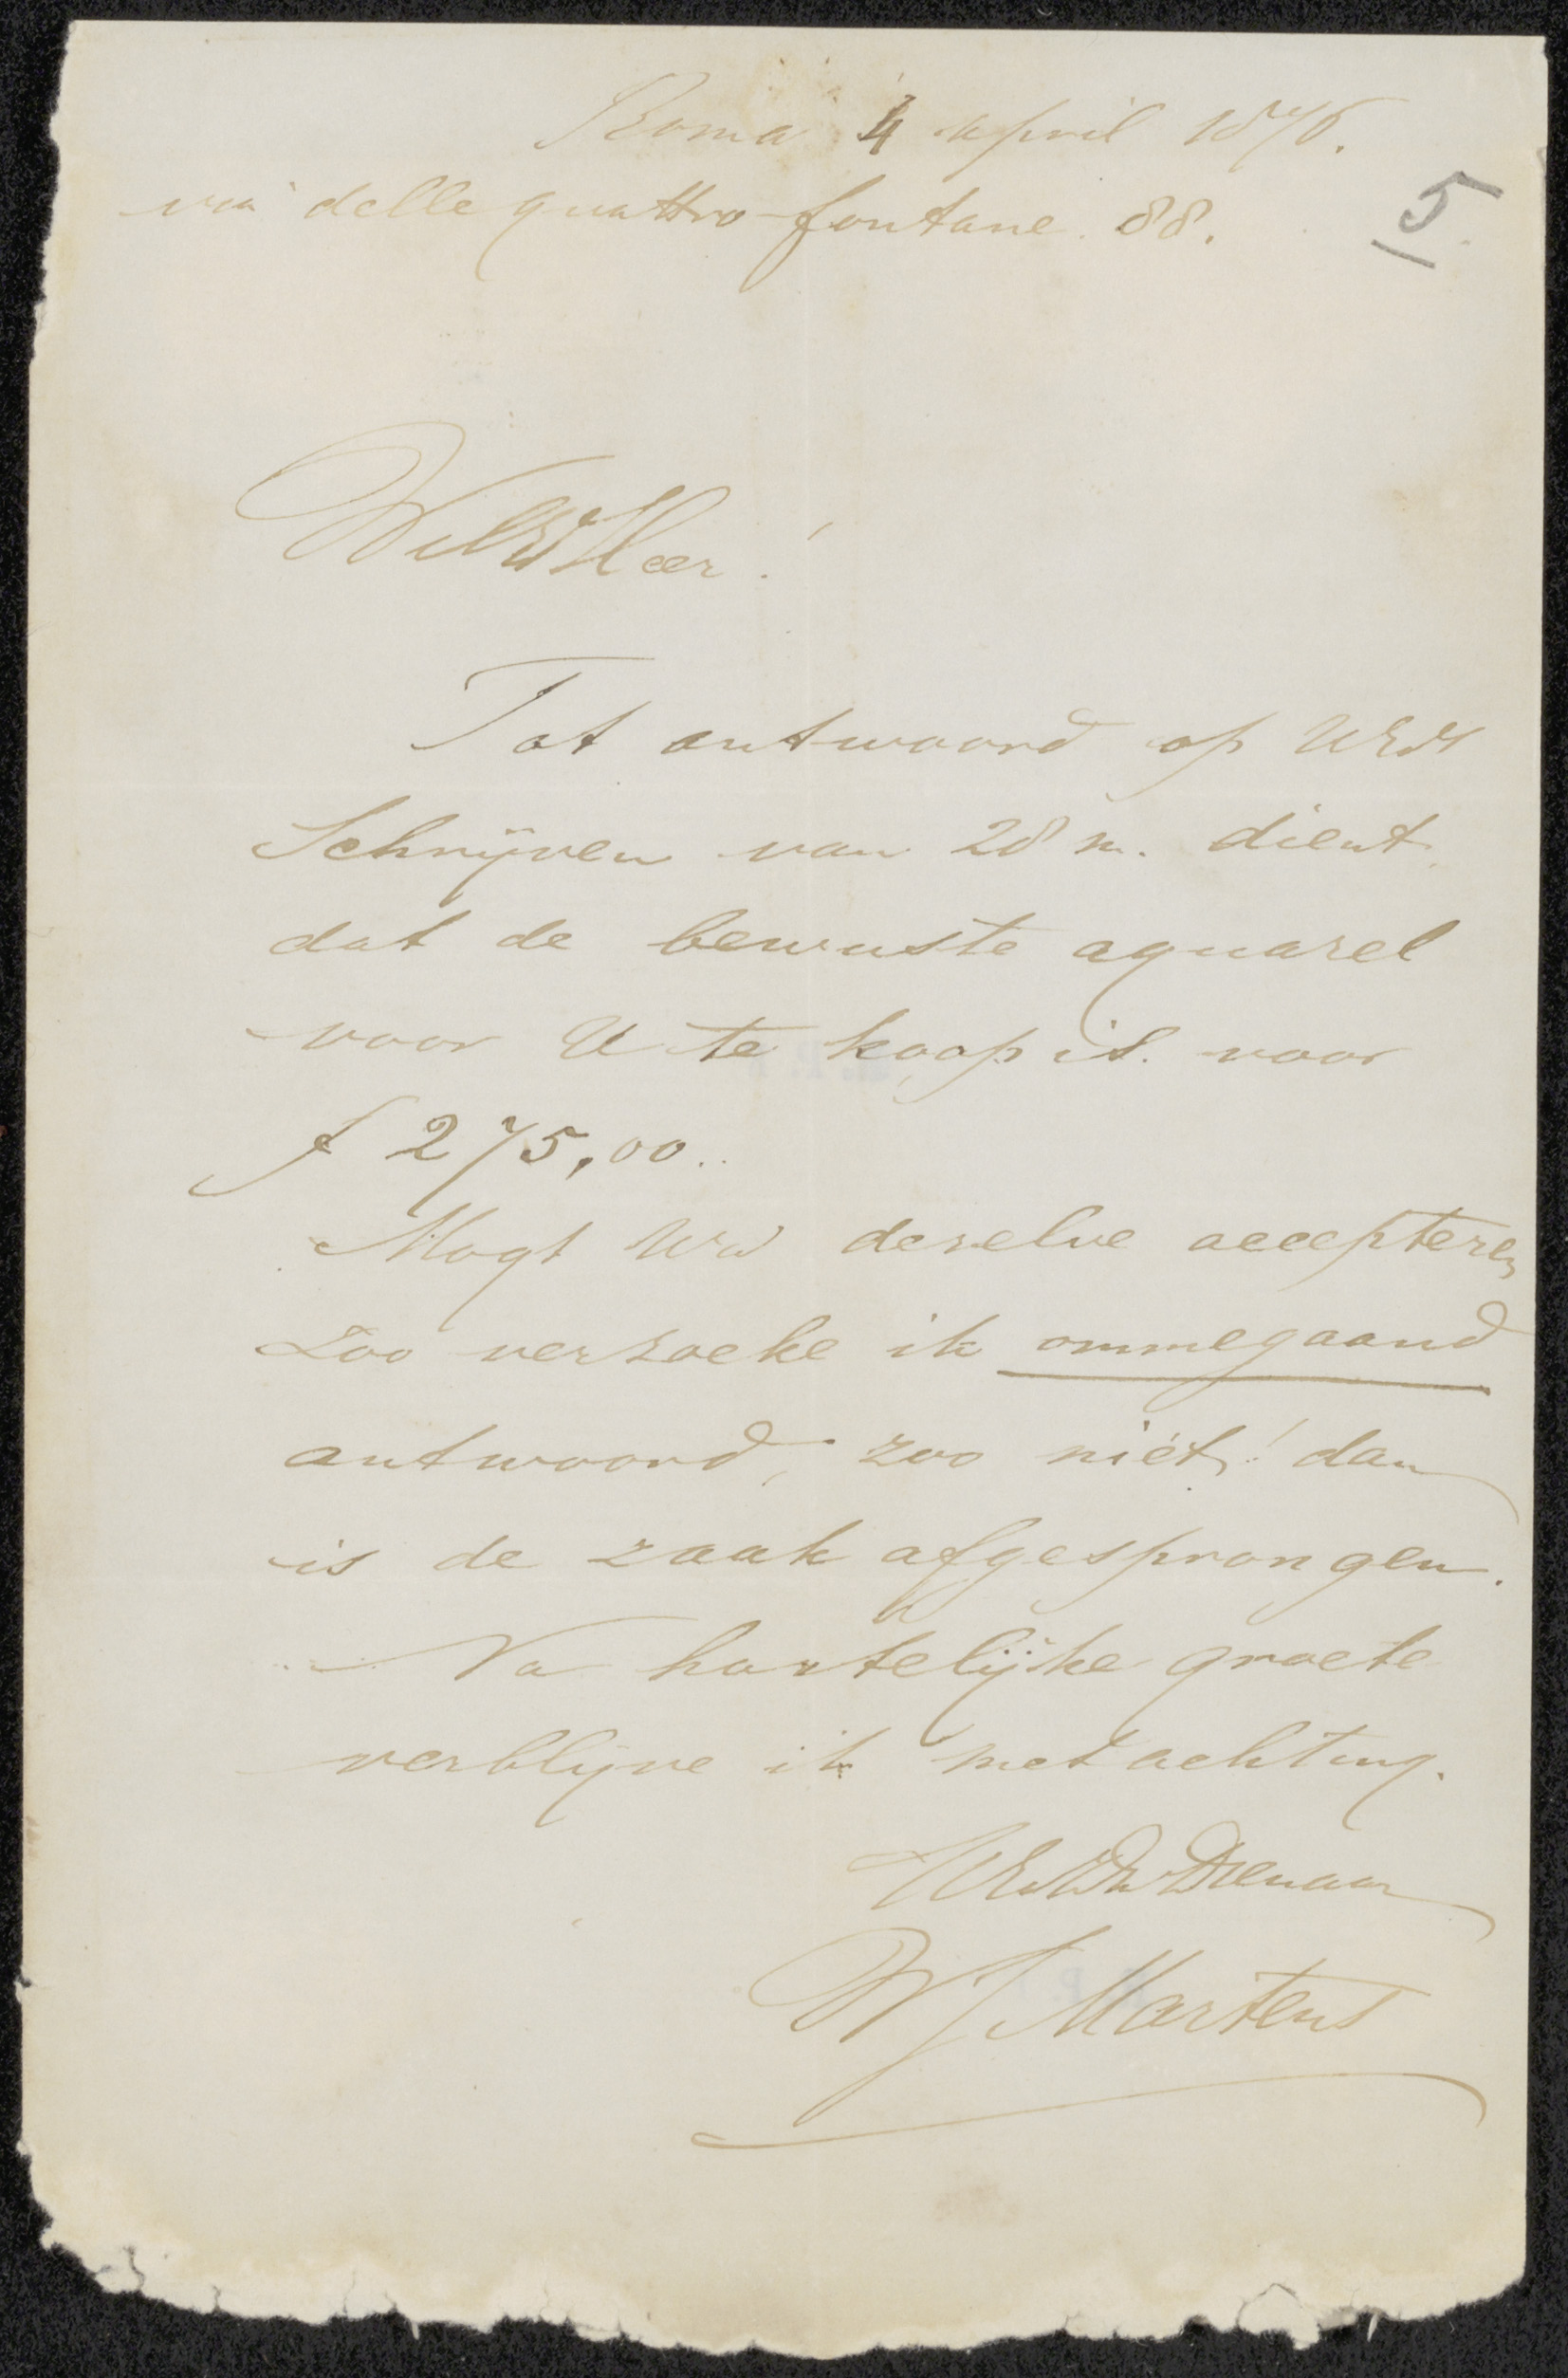 Roma 4 april 1876.
via delle quattro fontane. 88.
5
WelEd Heer!
Tot antwoord op UEds
Schrijven van 28 m. dient
dat de bewuste aquarel
voor U te koop is. voor
f 275,00..
Mogt UEd deselve accepteren
Zoo verzoeke ik ommegaand
antwoord, zoo niet! dan
is de zaak afgesprongen.
Na hartelijke groete
verblijve ik met achting.
Dienaar
WJ Martens